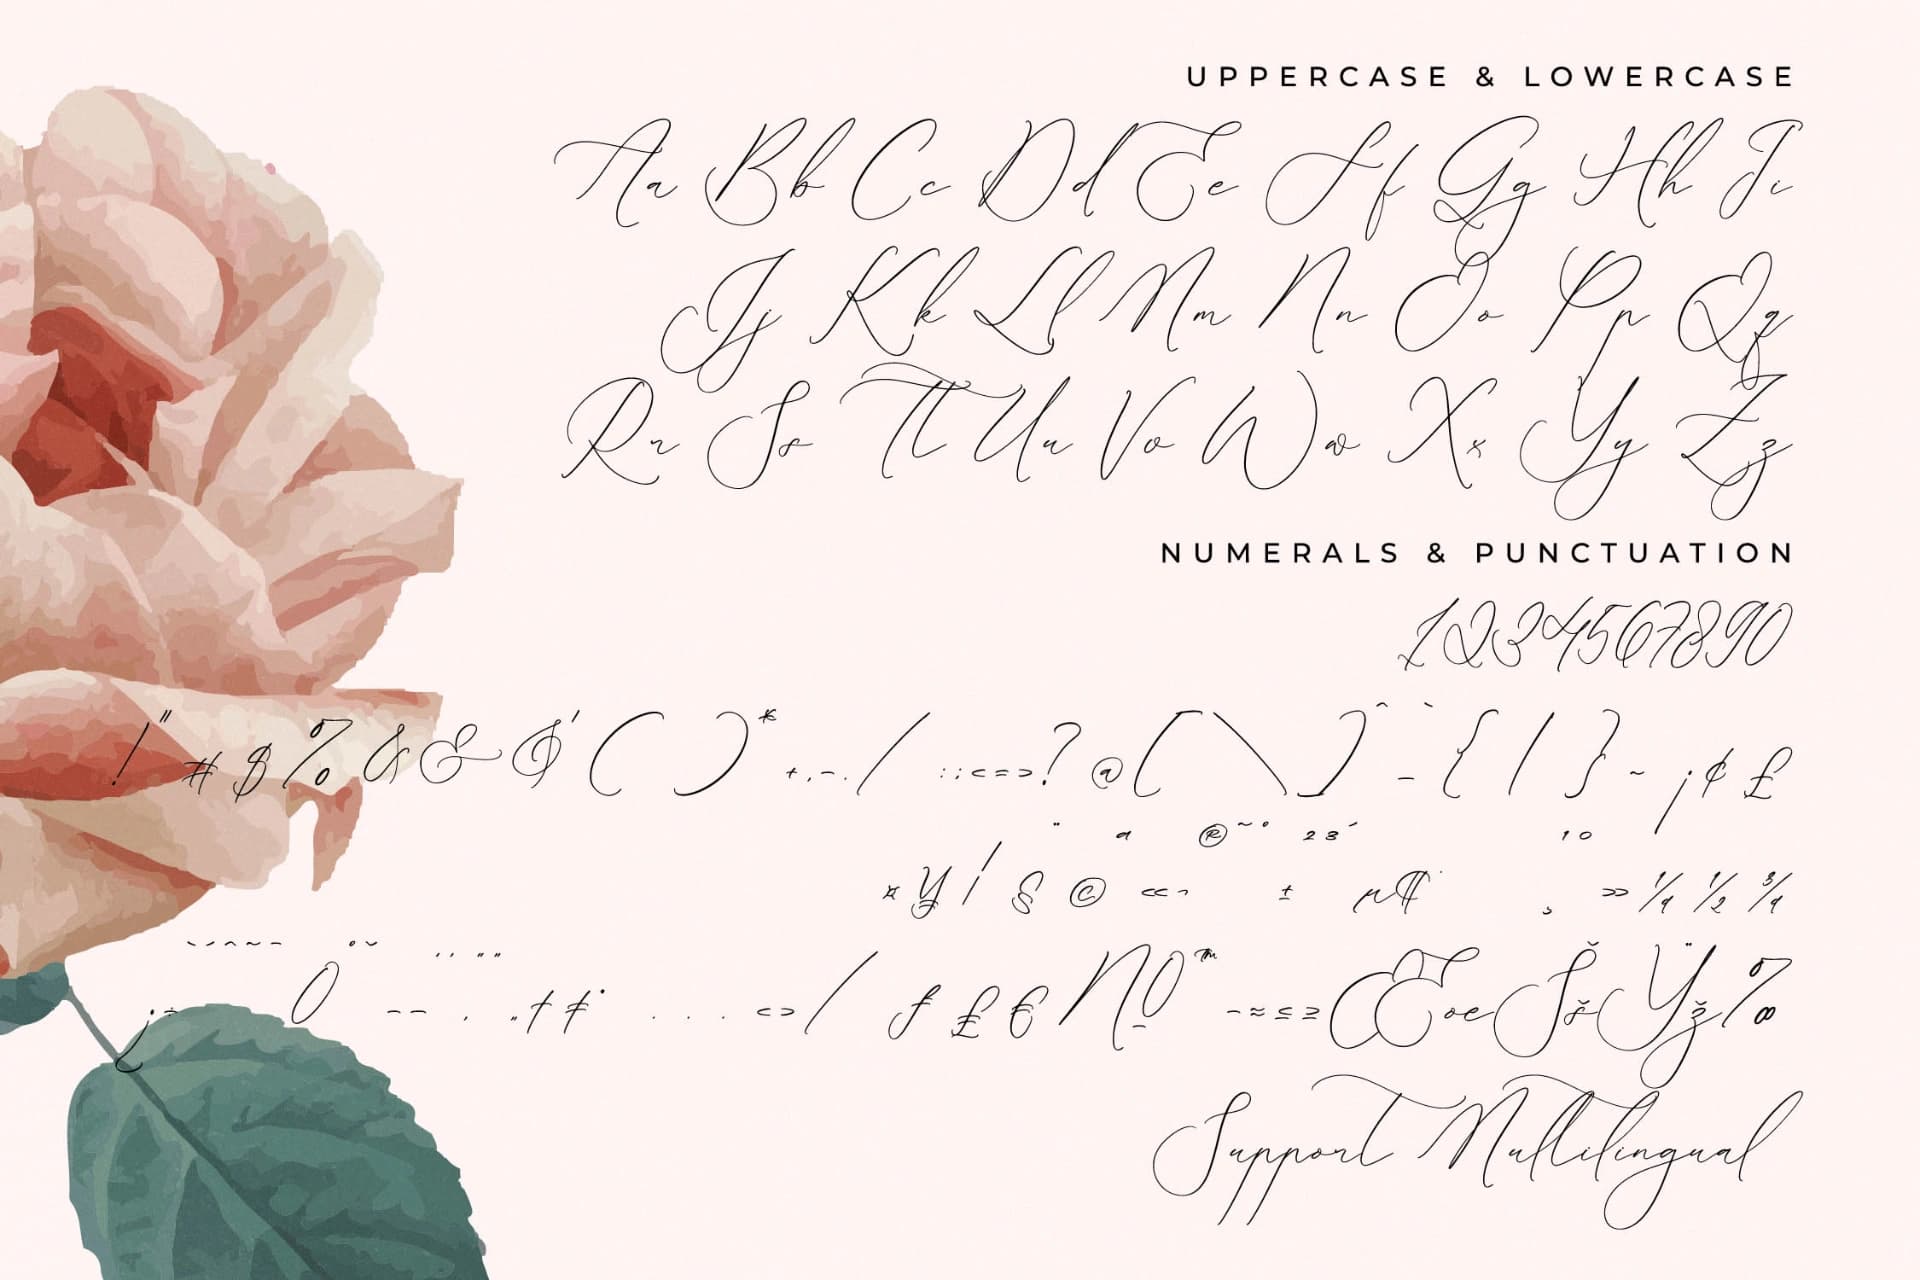 UPPERCASE & LOWERCASE
Aa Bb Cc Dd Ee Ff Gg Hh Ii
Jj Kk Ll Mm Nn Oo Pp Qq
Rr Ss Tt Uu Vv Ww Xx Yy Zz
NUMERALS & PUNCTUATION
1234567890
!"#$%&&$'()*+,-./:;<=>?@[\]^`_{|}~¡¢£
¤¥¦§¨©ª«¬®¯°±²³´µ¶·¸¹º»¼½¾
– — ‚ „ † ‡ • . . . < > / ƒ £ € № ™ − ≈ ≤ ≥ Œœ Šš Ÿž ‰
Support Multilingual